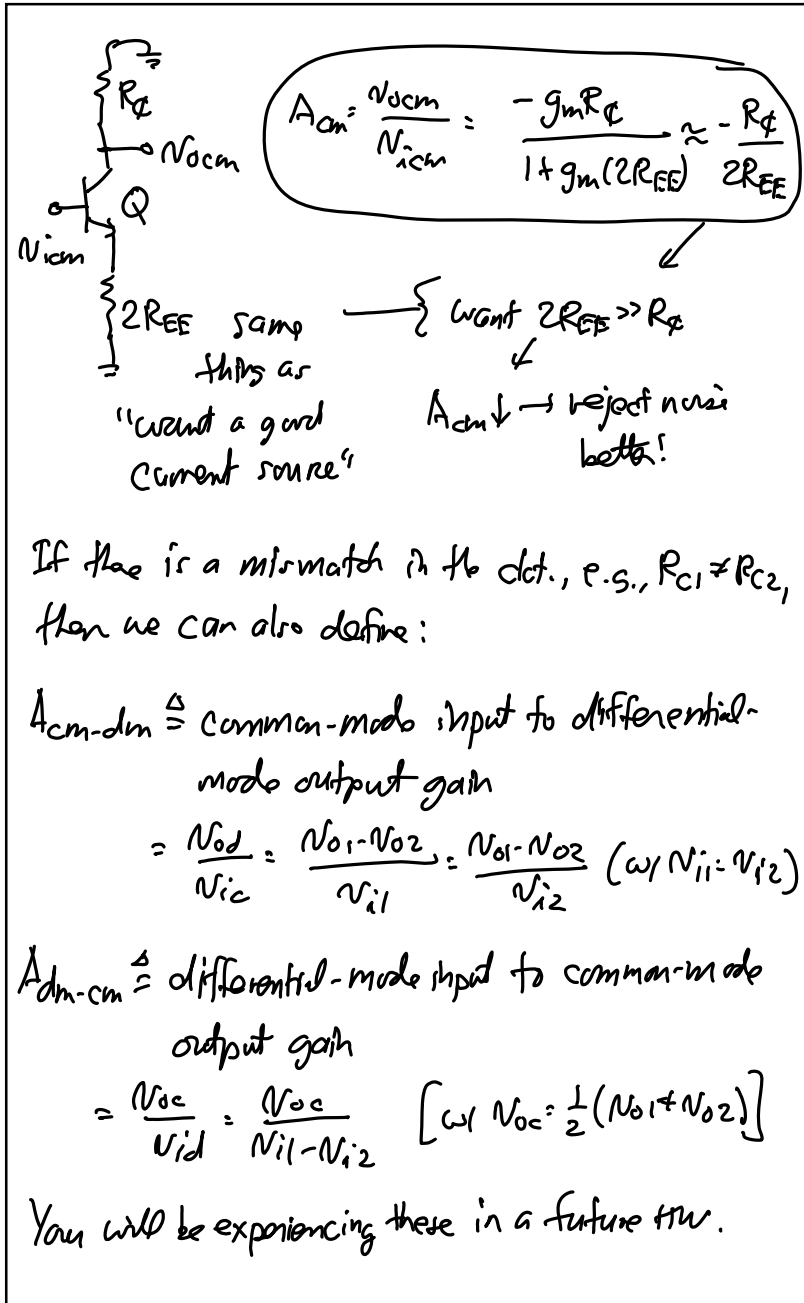 R_C
v_ocm
Q
v_icm
2R_EE
A_cm = v_ocm / v_icm = -g_m R_C / (1 + g_m(2R_EE)) ≈ -R_C / 2R_EE
same thing as
"want a good current source"
want 2R_EE >> R_C
A_cm ↓ → reject noise
better!
If there is a mismatch in the ckt., e.g., R_C1 ≠ R_C2,
then we can also define:
A_cm-dm ≜ common-mode input to differential-
mode output gain
= v_od / v_ic = (v_o1 - v_o2) / v_i1 = (v_o1 - v_o2) / v_i2 (w/ v_i1 = v_i2)
A_dm-cm ≜ differential-mode input to common-mode
output gain
= v_oc / v_id = v_oc / (v_i1 - v_i2) [w/ v_oc = 1/2 (v_o1 + v_o2)]
You will be experiencing these in a future HW.